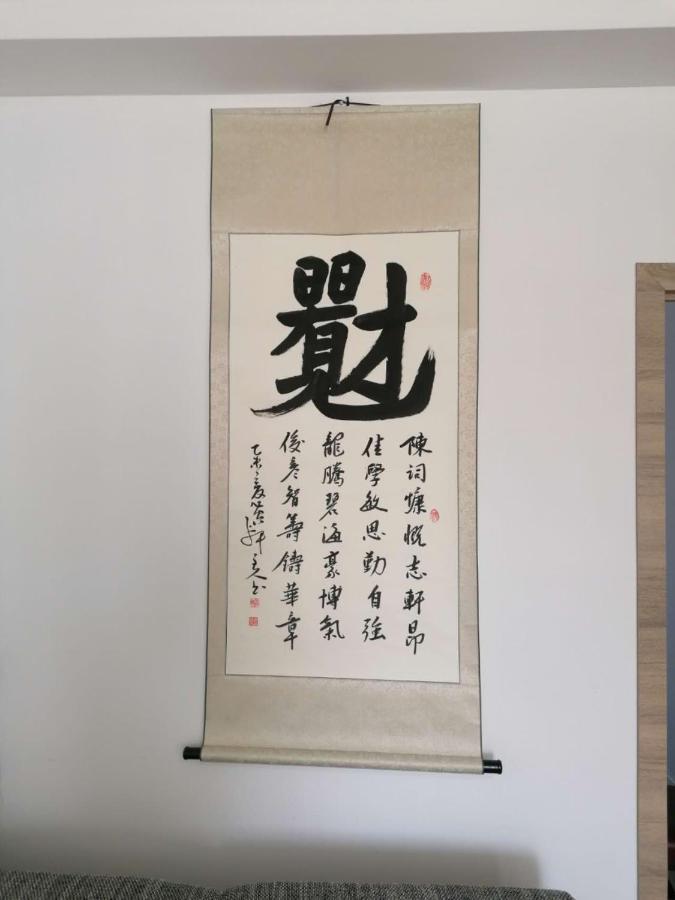 陳詞慷慨志軒昂
佳學敏思勤自強
龍騰碧海豪博氣
俊彥智籌鑄華章
乙未夏軒主人书